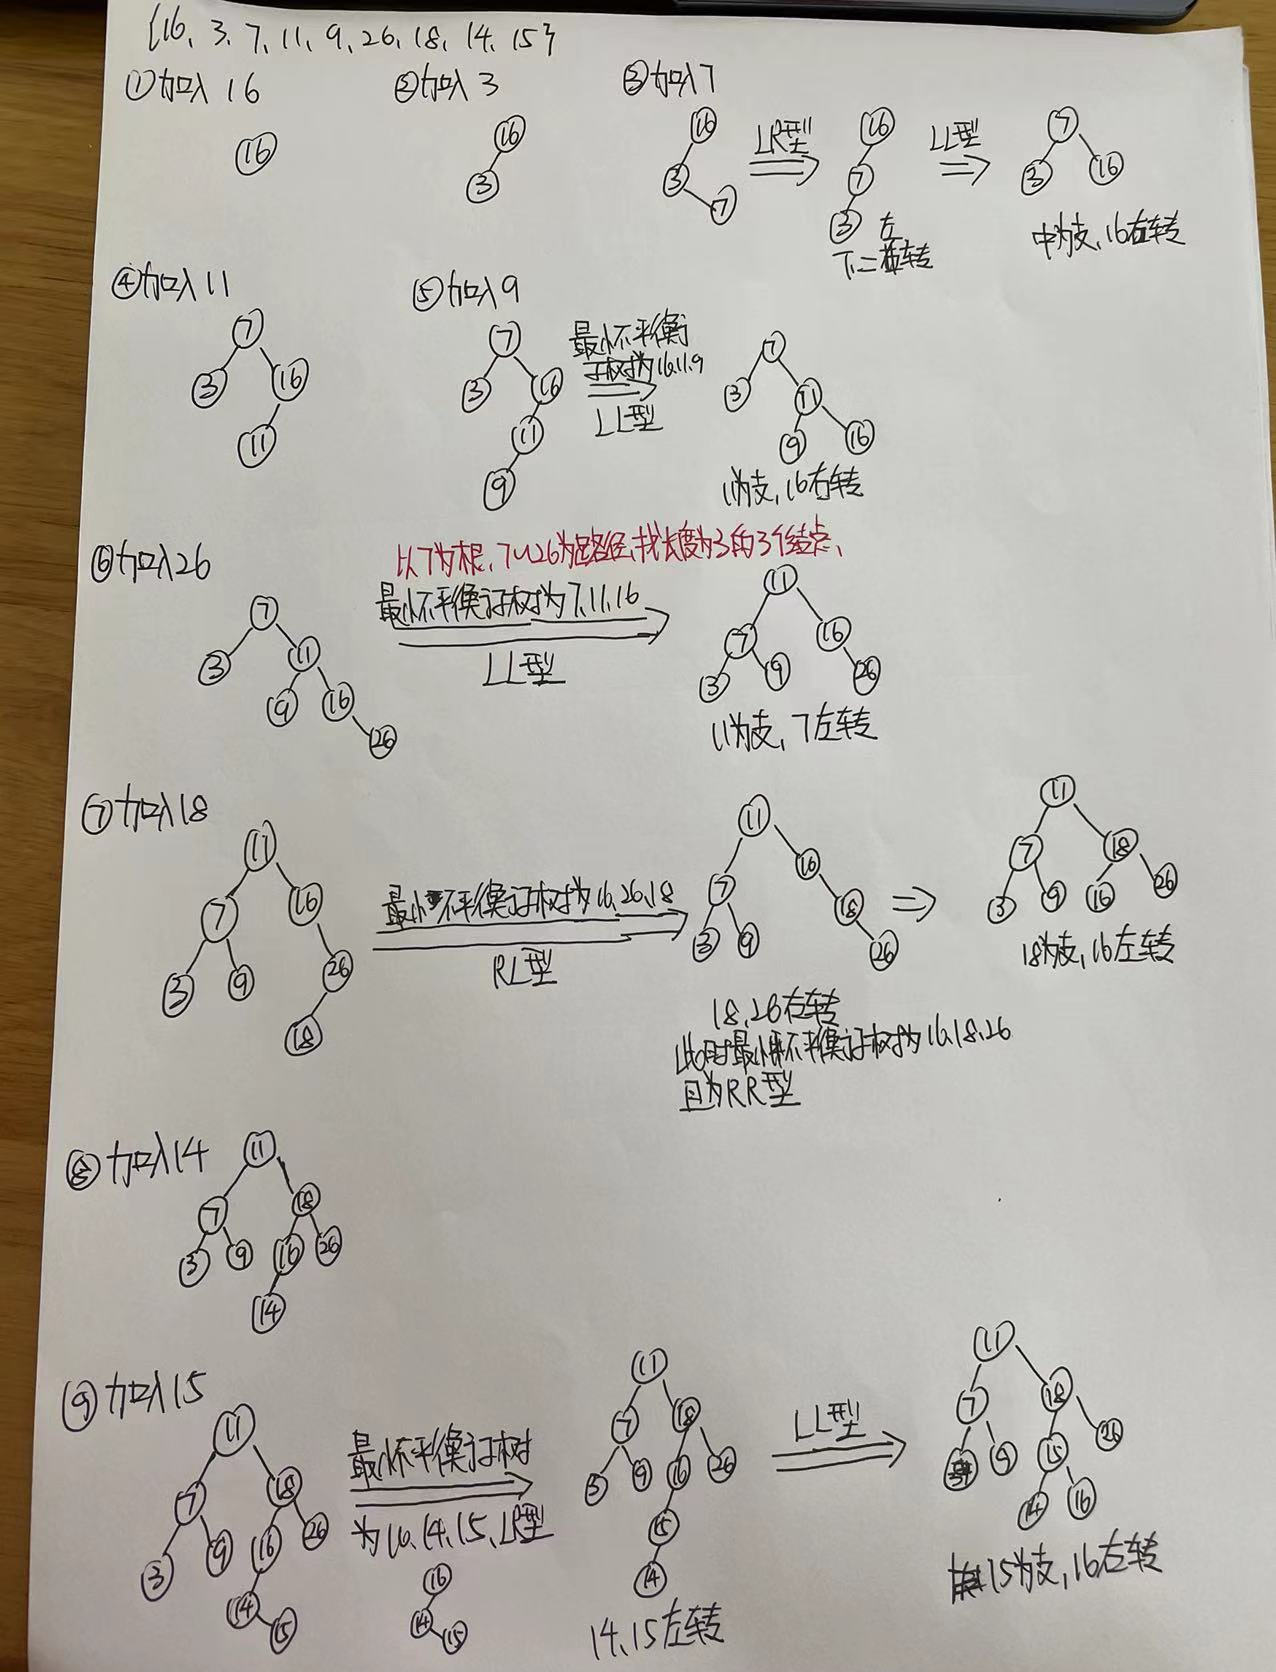 {16、3、7、11、9、26、18、14、15}
①加入16
②加入3
③加入7
16
16
3
16
3
7
LR型
16
7
3
左
下二 转
LL型
7
3
16
中为支，16右转
④加入11
7
3
16
11
⑤加入9
7
3
16
11
9
最小不平衡
子树为16.11.9
LL型
7
3
11
9
16
11为支，16右转
⑥加入26
7
3
11
9
16
26
以7为根、7~26为路径，找长度为3的3个结点、
最小不平衡子树为7.11.16
LL型
11
7
16
3
9
26
11为支，7左转
⑦加入18
11
7
16
3
9
26
18
最小不平衡子树为16.26.18
RL型
11
7
16
3
9
18
26
18、26右转
此时最小不平衡子树为16.18.26
且为RR型
11
7
18
3
9
16
26
18为支，16左转
⑧加入14
11
7
18
3
9
16
26
14
⑨加入15
11
7
18
3
9
16
26
14
15
最小不平衡子树
为16.14.15、LR型
16
14
15
11
7
18
3
9
16
26
15
14
14、15左转
LL型
11
7
18
9
15
26
14
16
15为支，16右转